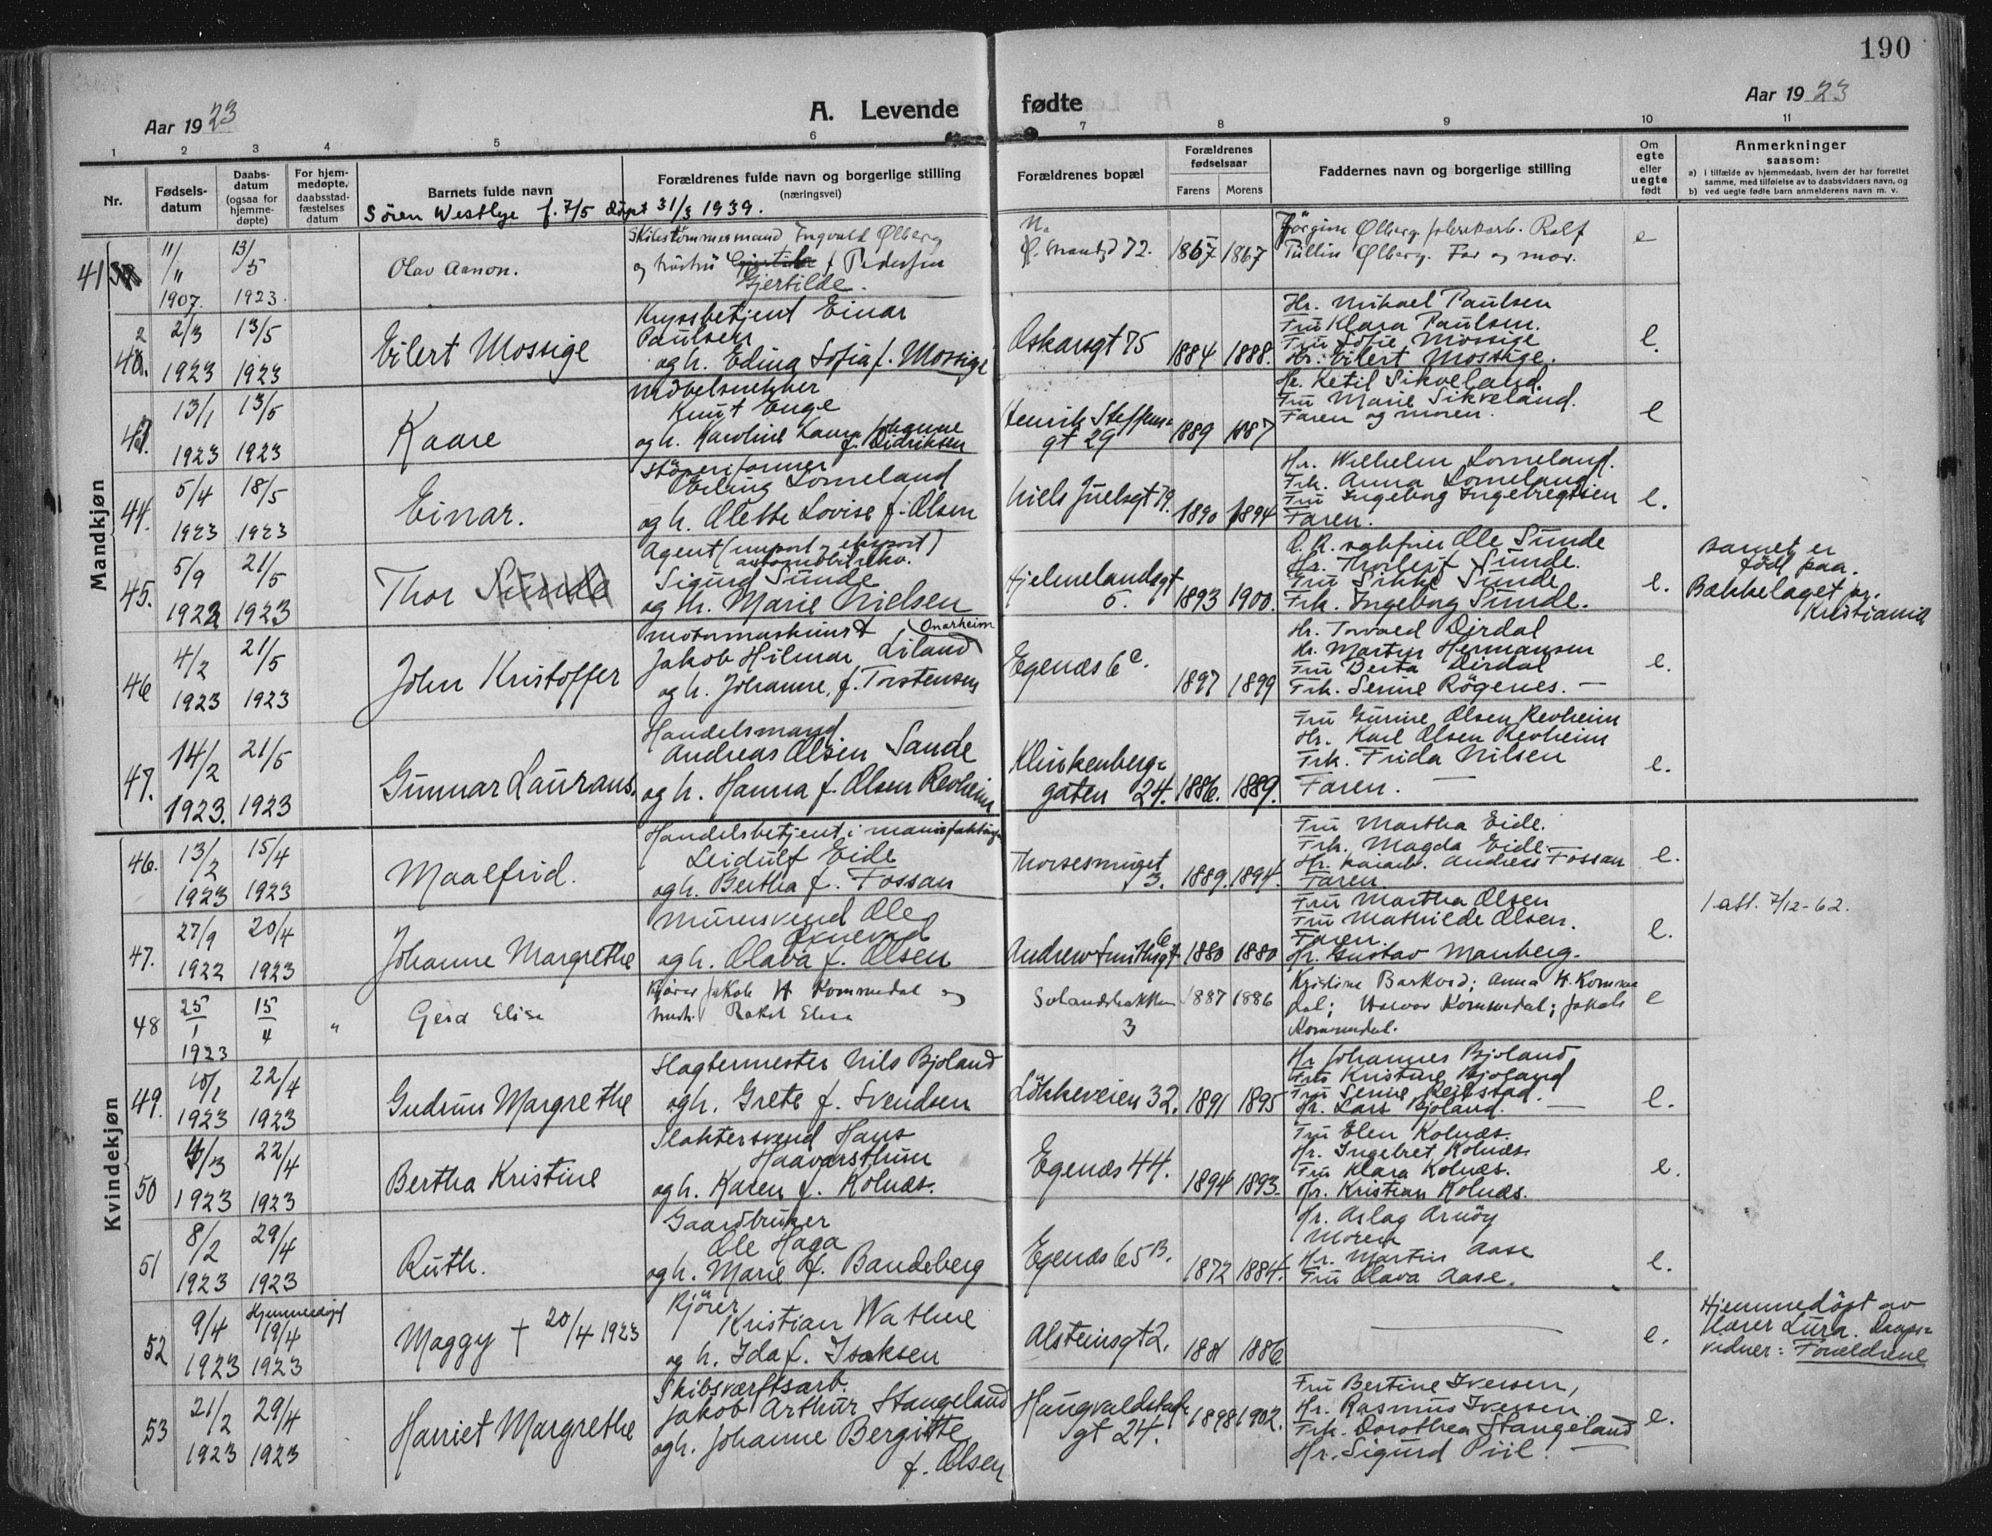 190
Aar 1923
A. Levende fødte
Aar 1923
1 2 3 4 5 6 7 8 9 10 11
Nr.
Fødsels-
datum
Daabs-
datum
(ogsaa for
hjemme-
døpte)
For hjem-
medøpte,
daabsstad-
fæstelses
datum
Barnets fulde navn
Forældrenes fulde navn og borgerlige stilling
(næringsvei)
Forældrenes bopæl
Forældrenes
fødselsaar
Farens Morens
Faddernes navn og borgerlige stilling
Om
egte
eller
uegte
født
Anmerkninger
saasom:
a) i tilfælde av hjemmedaab, hvem der har forrettet
samme, med tilføielse av to daabsvidners navn, og
b) ved uegte fødte barn anmelderens navn m. v.
Søren Westlye f. 7/5 døpt 31/3 1939.
Mandkjøn
41
11/11 1907.
13/5 1923.
Olav Aanon.
Skibstømmermand Ingvald Ølberg
og hustru f. Pedersen
Gjertilde.
Ø. Strandgt 72.
1867 1867
Jörgine Ølberg, fabrikarb. Rolf
Tullin Ølberg. Far og mor.
e
42.
2/3 1923
13/5 1923
Eilert Mossige
Kryssbetjent Einar
Paulsen
og h. Edina Sofia f. Mossige
Oskarsgt 75
1884 1888.
Hr. Mikael Paulsen
Fru Klara Paulsen.
Fru Sofie Mossige
Hr. Eilert Mossige.
e.
43.
13/1 1923
13/5 1923
Kaare
Møbelsnekker
Knut Enge
og h. Karoline Laura Johanne
f. Didriksen
Henrik Steffens-
gt 29
1889 1887
Hr. Ketil Sikveland.
Fru Marie Sikveland.
Faren og moren.
e
44.
5/4 1923
18/5 1923
Einar.
Støperiformer
Erling Lomeland
og h. Olette Lovise f. Olsen
Niels Juelsgt 79.
1890 1894
Hr. Wilhelm Lomeland.
Frk. Anna Lomeland
Fru Ingeborg Ingebregtsen
Faren.
e.
45.
5/9 1922
21/5 1923
Thor Sunde
Agent (import og eksport)
automobilrekv.
Sigurd Sunde
og h. Marie Nielsen
Hjelmelandsgt
6.
1893 1900.
O. R. sakfører Ole Sunde
Hr. Thorleif Sunde.
Fru Sikke Sunde
Frk. Ingeborg Sunde.
e.
Barnet er
født paa
Bækkelaget pr.
Kristiania
46
4/2 1923
21/5 1923
John Kristoffer
Motormaskinist (Onarheim)
Jakob Hilmar Liland
og h. Johanne f. Torstensen
Egenæs 6c.
1897 1899
Hr. Torvald Dirdal
Hr. Martin Hermansen
Fru Berta Dirdal
Frk. Serine Røgenes. —
e.
47.
14/2 1923.
21/5 1923
Gunnar Laurans.
Handelsmand
Andreas Olsen Sande
og h. Hanna f. Olsen Revheim
Klinkenberg-
gaten 24.
1886. 1889.
Fru Gurine Olsen Revheim
Hr. Karl Olsen Revheim
Frk. Frida Nilsen
Faren. —
e.
Kvindekjøn
46.
13/2 1923
15/4 1923
Maalfrid.
Handelsbetjent i manufaktur
Leidulf Eide
og h. Bertha f. Fossan
Thorsesmuget
3.
1889. 1894.
Fru Martha Eide.
Frk. Magda Eide.
Hr. kaiarb. Andreas Fossan
Faren.
e.
47.
27/9 1922
20/4 1923
Johanne Margrethe
Murersvend Ole
og h. Olava f. Olsen
Andrew Smithsgt 6
1880 1880
Fru Martha Olsen
Fru Mathilde Olsen.
Faren.
Hr. Gustav Manberg.
e.
1 att. 7/12-62.
48
25/1 1923
15/4
"
Gerd Elise
Kjører Jakob H Kommedal og
hustr. Rakel Elisa
Solandsbakken
3
1887 1886
Kristine Barkved; Anna H. Komme-
dal; Halvor Kommedal; Jakob
Kommedal.
e
49.
10/1 1923
22/4 1923
Gudrun Margrethe
Slagtermester Nils Bjoland
og h. Grete f. Svendsen
Løkkeveien 32.
1891 1895
Hr Johannes Bjoland
Frk Kristine Bjoland
Fru Serine Reilstad.
Hr. Lars Bjoland. —
e.
50
4/3 1923
22/4 1923
Bertha Kristine
Slaktersvend Hans
Haavarsthun
og h. Karen f. Kolnæs.
Egenæs 44.
1894 1893.
Fru Elen Kolnæs.
Hr. Ingebret Kolnæs
Fru Klara Kolnæs.
Hr. Kristian Kolnæs.
e.
51
8/2 1923
29/4 1923
Ruth.
Gaardbruker
Ole Haga
og h. Marie f. Bandeberg
Egenæs 65B.
1872 1884.
Hr. Aslag Arnøy
Moren
Hr. Martin Aase
Fru Olava Aase.
e.
52
9/4 1923
Hjemmedøpt
19/4 1923
Maggy † 20/4 1923
Kjører
Kristian Wathne
og h. Ida f. Isaksen
Alsteinsgt 2.
1881 1886
—
e.
Hjemmedøpt av
Lærer Lura. Daaps-
vidner: Forældrene
53
21/2 1923
29/4 1923
Harriet Margrethe
Skibsværftsarb.
Jakob Arthur Stangeland
og h. Johanne Bergitte
f. Olsen
Haugvaldstads
gt 24.
1898 1902.
Fru Bertine Iversen,
Hr. Rasmus Iversen
Frk. Dorothea Stangeland
Hr. Sigurd Piil. —
e.